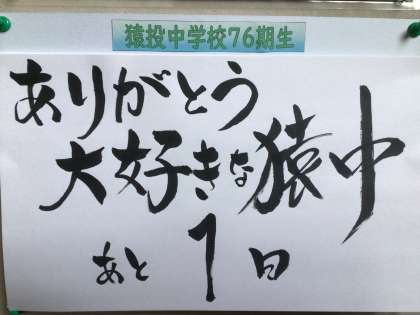 猿投中学校76期生
ありがとう
大好きな猿中
あと1日